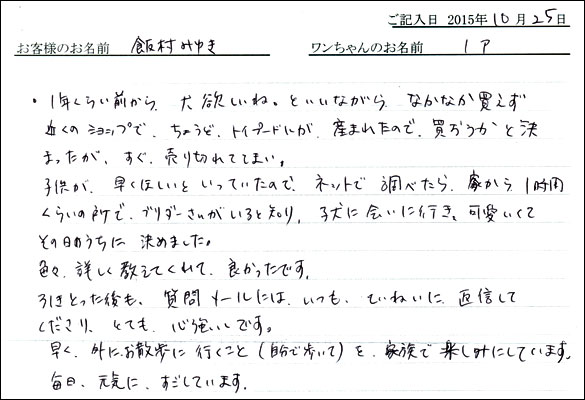 ご記入日 2015年10月25日
お客様のお名前 飯村みゆき ワンちゃんのお名前 1ア
・1年くらい前から、犬欲しいね。といいながら、なかなか買えず
近くのショップで、ちょうど、トイプードルが、産まれたので、買おうかと決
まったが、すぐ、売り切れてしまい。
子供が、早くほしいといっていたので、ネットで調べたら、家から1時間
くらいの所で、ブリダーさんがいると知り、子犬に会いに行き、可愛いくて
その日のうちに決めました。
色々、詳しく教えてくれて、良かったです。
引きとった後も、質問メールには、いつも、ていねいに、返信して
くださり、とても、心強いです。
早く、外にお散歩に行くこと(自分で歩いて)を、家族で楽しみにしています。
毎日、元気に、すごしています。